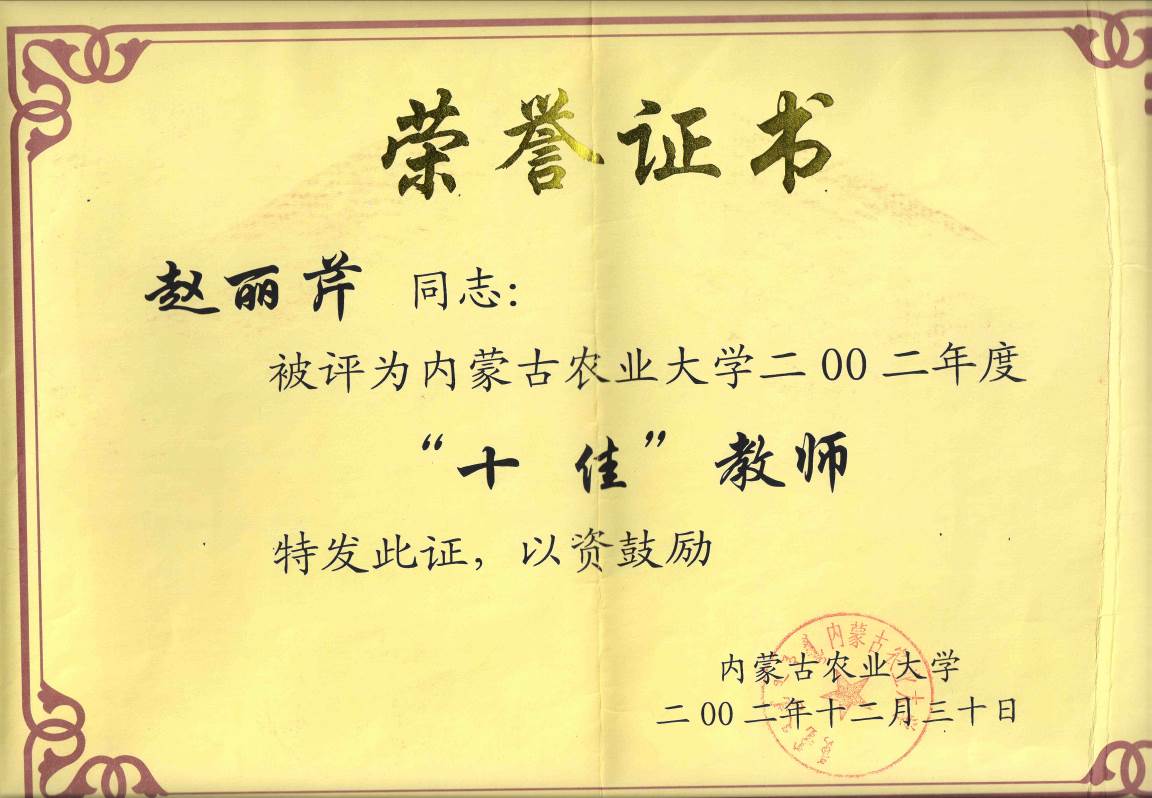 荣誉证书
赵丽芹 同志：
被评为内蒙古农业大学二00二年度
“十 佳”教师
特发此证，以资鼓励
内蒙古农业大学
二00二年十二月三十日
内蒙古农业大学